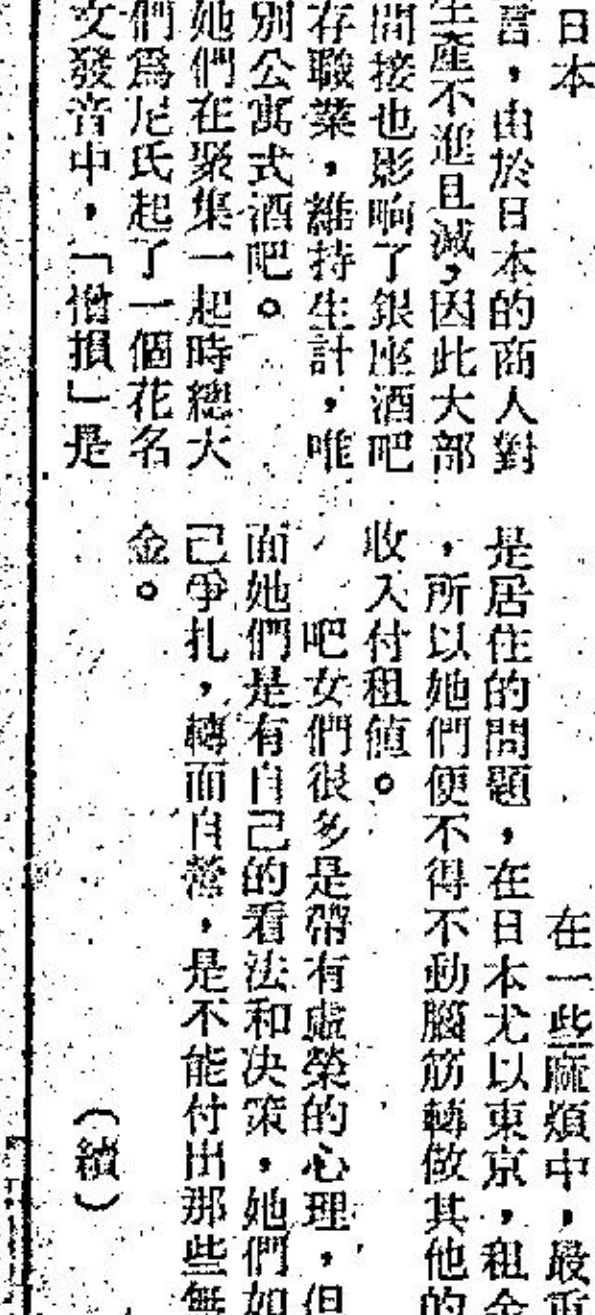 日本
言，由於日本的商人對
生產不進且減，因此大部
間接也影响了銀座酒吧
存職業，維持生計，唯
別公寓式酒吧。
她們在聚集一起時總大
們爲尼氏起了一個花名
文發音中，「憎損」是
在一些麻煩中，最重
是居住的問題，在日本尤以東京，租金
，所以她們便不得不動腦筋轉做其他的
收入付租值。
吧女們很多是帶有虛榮的心理，但
面她們是有自己的看法和决策，她們如
己爭扎，轉而自營，是不能付出那些無
金。
（續）